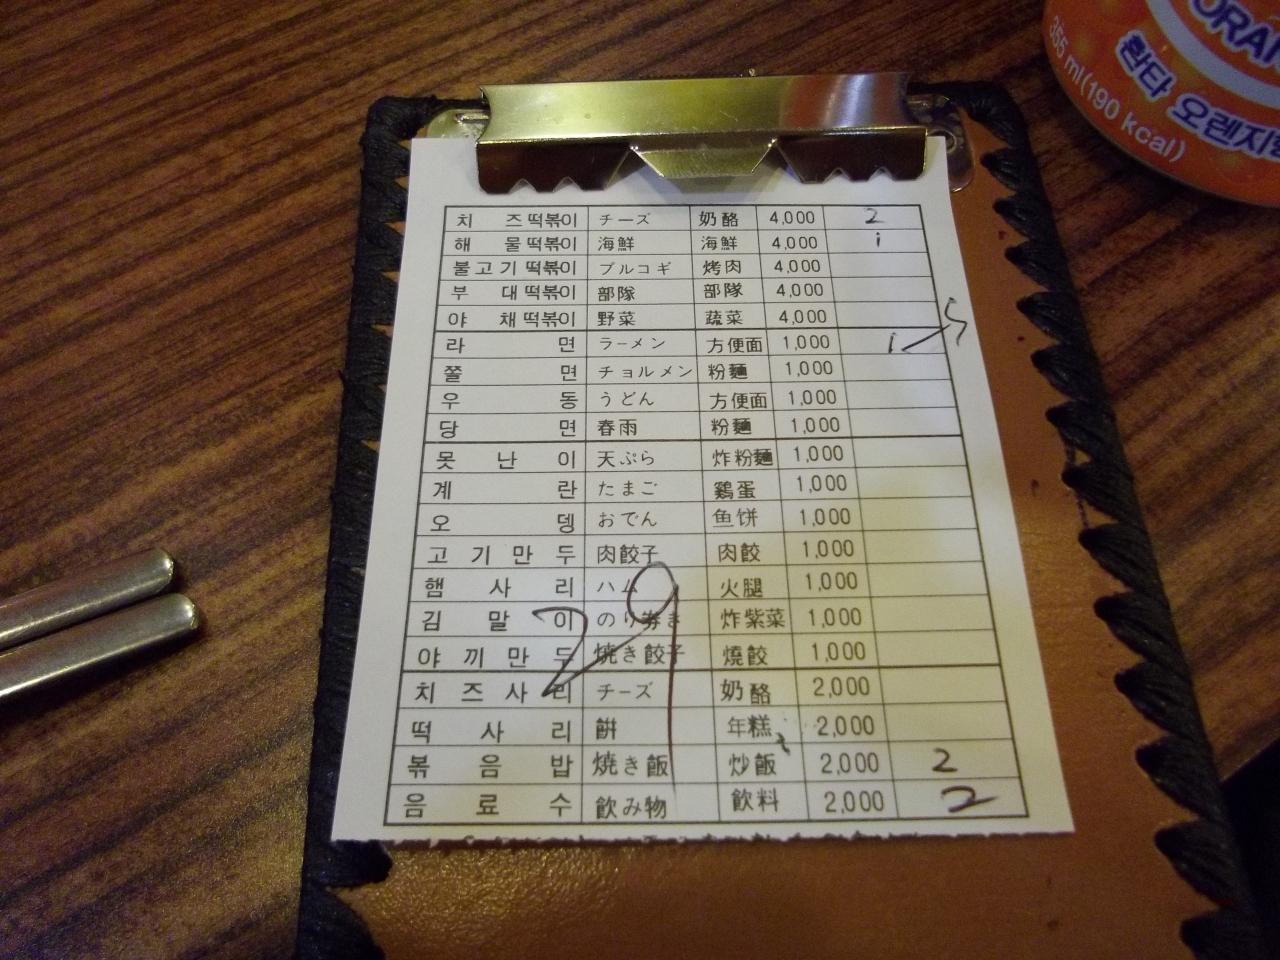 ORAN
환타 오렌지
355 ml(190 kcal)
치즈떡볶이 チーズ 奶酪 4,000 2
해물떡볶이 海鮮 海鮮 4,000 1
불고기떡볶이 プルコギ 烤肉 4,000
부대떡볶이 部隊 部隊 4,000
야채떡볶이 野菜 蔬菜 4,000
라면 ラーメン 方便面 1,000 1 5
쫄면 チョルメン 粉麵 1,000
우동 うどん 方便面 1,000
당면 春雨 粉麵 1,000
못난이 天ぷら 炸粉麵 1,000
계란 たまご 鷄蛋 1,000
오뎅 おでん 鱼饼 1,000
고기만두 肉餃子 肉餃 1,000
햄사리 ハム 火腿 1,000
김말이 のり巻き 炸紫菜 1,000
29
야끼만두 焼き餃子 燒餃 1,000
치즈사리 チーズ 奶酪 2,000
떡사리 餠 年糕 2,000
볶음밥 焼き飯 炒飯 2,000 2
음료수 飲み物 飲料 2,000 2